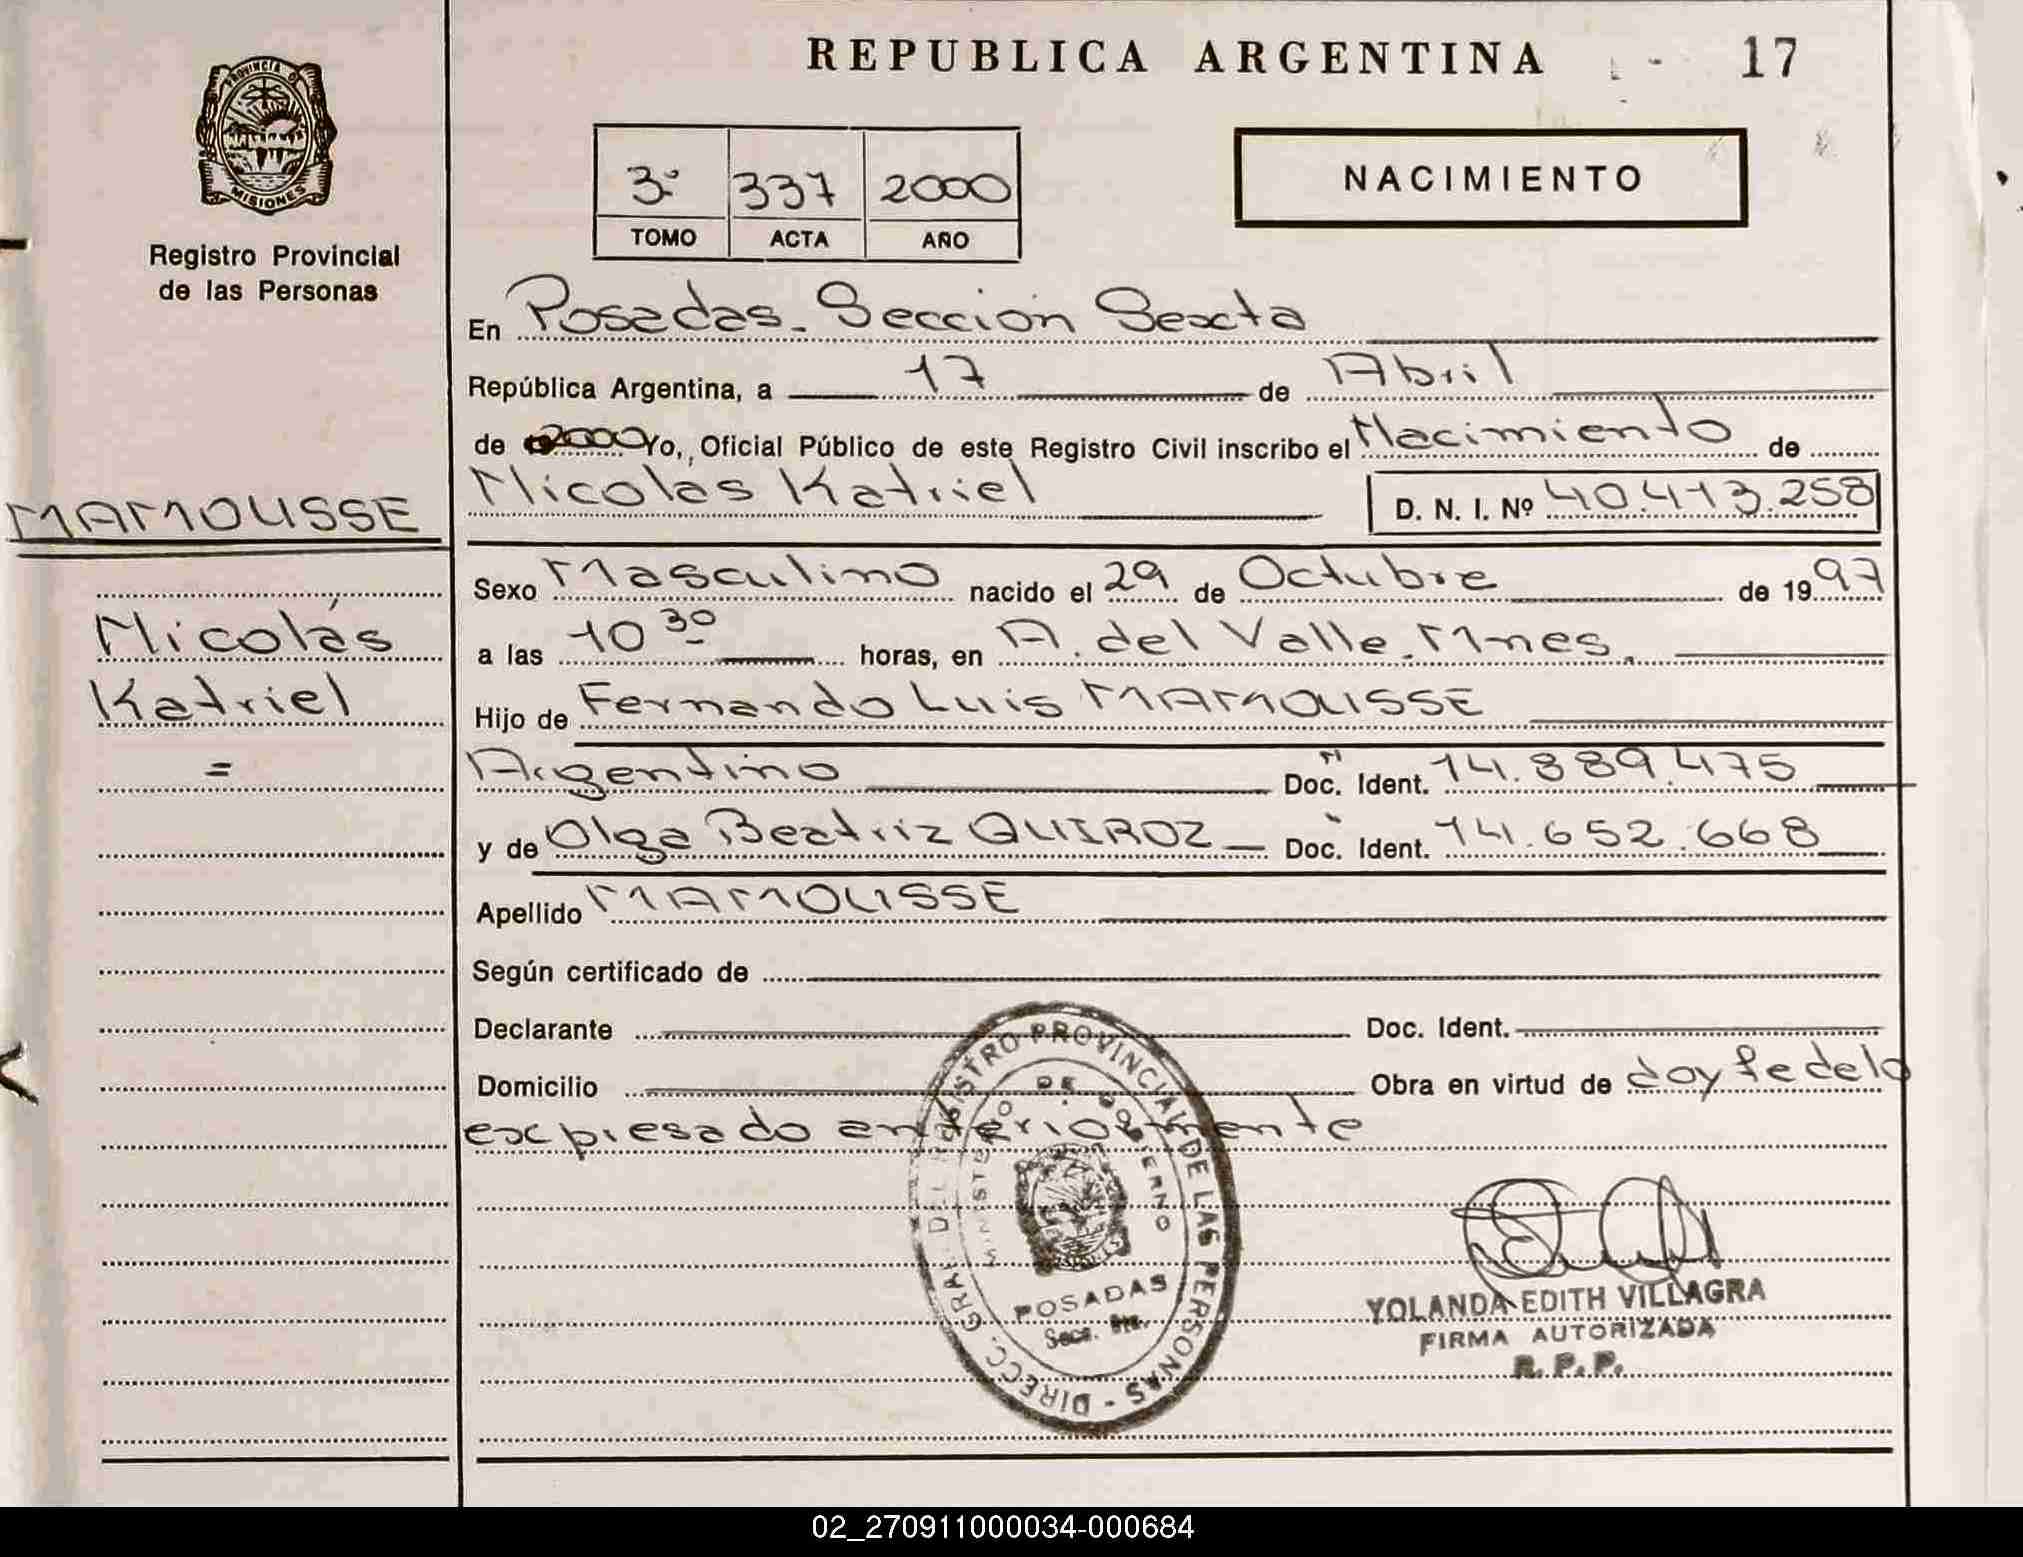 REPUBLICA ARGENTINA 17
PROVINCIA DE
MISIONES
Registro Provincial
de las Personas
3º 337 2000
TOMO ACTA AÑO
NACIMIENTO
En Posadas. Sección Sexta
República Argentina, a 17 de Abril
de 2000 Yo, Oficial Público de este Registro Civil inscribo el Nacimiento de
Nicolas Katriel D. N. I. Nº 40.413.258
MAMOUSSE
Nicolás
Katriel
=
Sexo Masculino nacido el 29 de Octubre de 1997
a las 10 30 horas, en A. del Valle. Mnes.
Hijo de Fernando Luis MAMOUSSE
Argentino Doc. Ident. 14.889.475
y de Olga Beatriz QUIROZ Doc. Ident. 14.652.668
Apellido MAMOUSSE
Según certificado de
Declarante Doc. Ident.
Domicilio Obra en virtud de doy fe de lo
expresado anteriormente
DIRECC. GRAL. DEL REGISTRO PROVINCIAL DE LAS PERSONAS -
MINISTERIO DE GOBIERNO
POSADAS
Secc. 6ta.
YOLANDA EDITH VILLAGRA
FIRMA AUTORIZADA
R. P. P.
02_270911000034-000684